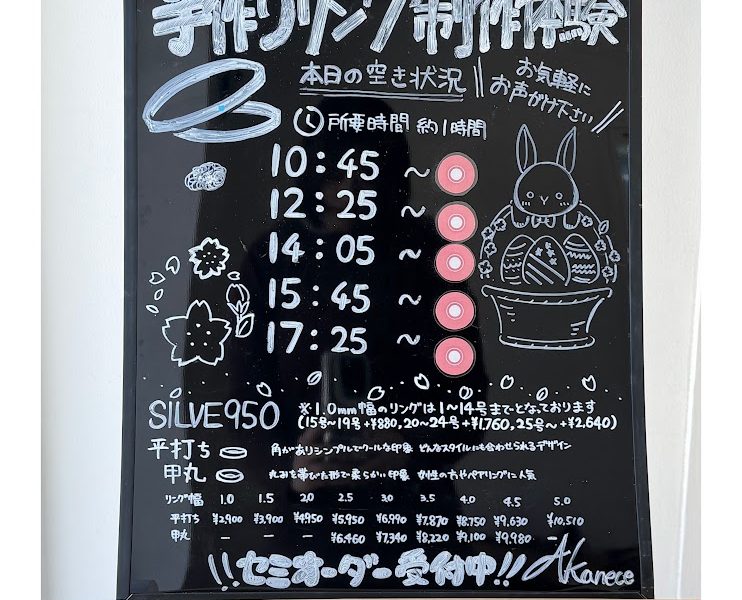 手作りリング制作体験
本日の空き状況
お気軽に
お声がけ下さい
所要時間 約1時間
10:45 ~
12:25 ~
14:05 ~
15:45 ~
17:25 ~
SILVE950
※1.0mm幅のリングは1~14号までとなっております
(15号~19号+¥880,20~24号+¥1,760,25号~+¥2,640)
平打ち 角がありシンプルでクールな印象 どんなスタイルにも合わせられるデザイン
甲丸 丸みを帯びた形で柔らかい印象 女性の方やペアリングに人気
リング幅 1.0 1.5 2.0 2.5 3.0 3.5 4.0 4.5 5.0
平打ち ¥2,900 ¥3,900 ¥4,950 ¥5,950 ¥6,990 ¥7,870 ¥8,750 ¥9,630 ¥10,510
甲丸 - - - ¥6,460 ¥7,340 ¥8,220 ¥9,100 ¥9,980 -
\\セミオーダー受付中!! Akanece